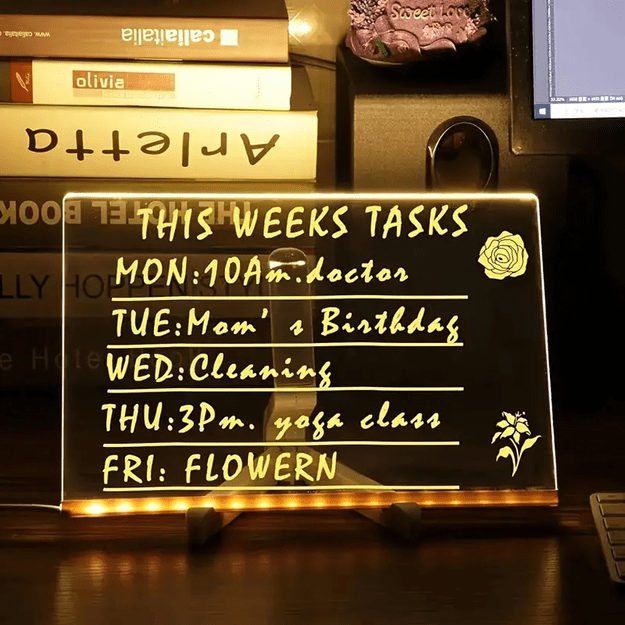 www.calia
calia italia
olivia
Arletta
THE HOTEL BOOK
LLY HOPPEN STYL
e Hote
Sweet Love
THIS WEEKS TASKS
MON:10Am.doctor
TUE:Mom's Birthdag
WED:Cleaning
THU:3Pm. yoga class
FRI: FLOWERN